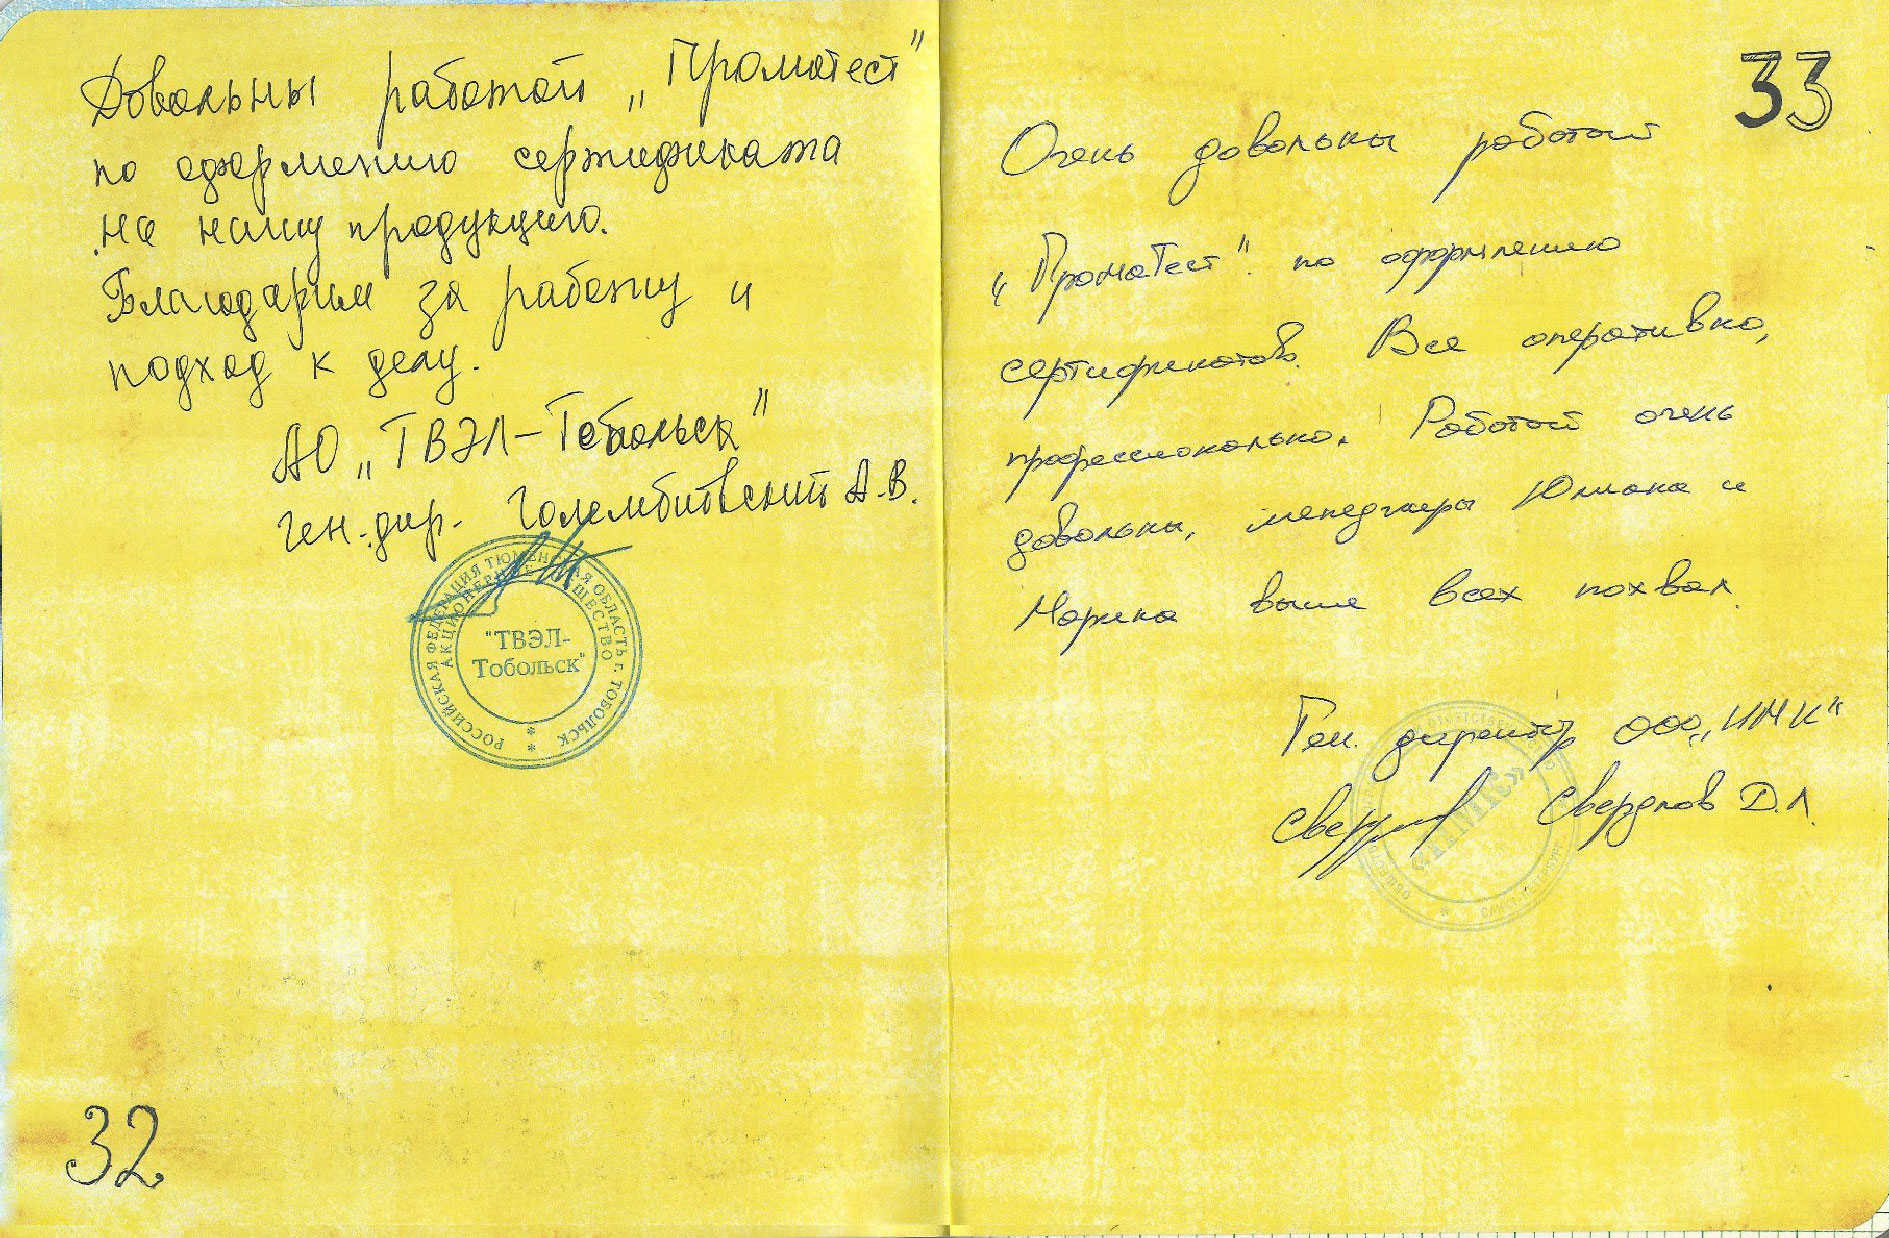 Довольны работой „Проматест"
по оформлению сертификата
на нашу продукцию.
Благодарим за работу и
подход к делу.
АО „ТВЭЛ-Тобольск"
ген.дир. Голембитовский А.В.
РОССИЙСКАЯ ФЕДЕРАЦИЯ ТЮМЕНСКАЯ ОБЛАСТЬ г. ТОБОЛЬСК
АКЦИОНЕРНОЕ ОБЩЕСТВО
"ТВЭЛ-
Тобольск"
32
33
Очень довольны работой
„ПромаТест". по оформлению
сертификатов. Все оперативно,
профессионально. Работой очень
довольны, менеджеры Юлиана и
Марина выше всех похвал.
Ген. директор ООО „ИМК"
Свердлов Д.Л.
«ИМК»
САНКТ-ПЕТЕРБУРГ